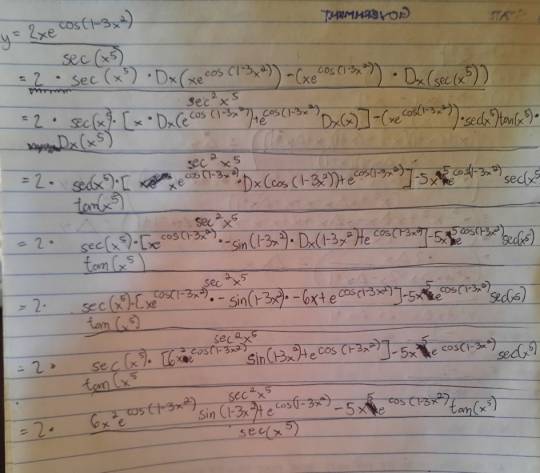 GOVERNMENT
y = 2xe^cos(1-3x²)
sec(x⁵)
= 2 · sec(x⁵) · Dx(xe^cos(1-3x²)) - (xe^cos(1-3x²)) · Dx(sec(x⁵))
sec²x⁵
= 2 · sec(x⁵) · [x · Dx(e^cos(1-3x²)) + e^cos(1-3x²) Dx(x)] - (xe^cos(1-3x²)) · sec(x⁵)tan(x⁵) ·
Dx(x⁵)
sec²x⁵
= 2 · sec(x⁵) · [xe^cos(1-3x²) · Dx(cos(1-3x²)) + e^cos(1-3x²)] - 5x⁵e^cos(1-3x²) sec(x⁵)
tan(x⁵)
sec²x⁵
= 2 · sec(x⁵) · [xe^cos(1-3x²) · -sin(1-3x²) · Dx(1-3x²) + e^cos(1-3x²)] - 5x⁵e^cos(1-3x²) sec(x⁵)
tan(x⁵)
sec²x⁵
= 2 · sec(x⁵) · [xe^cos(1-3x²) · -sin(1-3x²) · -6x + e^cos(1-3x²)] - 5x⁵e^cos(1-3x²) sec(x⁵)
tan(x⁵)
sec²x⁵
= 2 · sec(x⁵) · [6x²e^cos(1-3x²) sin(1-3x²) + e^cos(1-3x²)] - 5x⁵e^cos(1-3x²) sec(x⁵)
tan(x⁵
sec²x⁵
= 2 · 6x²e^cos(1-3x²) sin(1-3x²) + e^cos(1-3x²) - 5x⁵e^cos(1-3x²) tan(x⁵)
sec(x⁵)